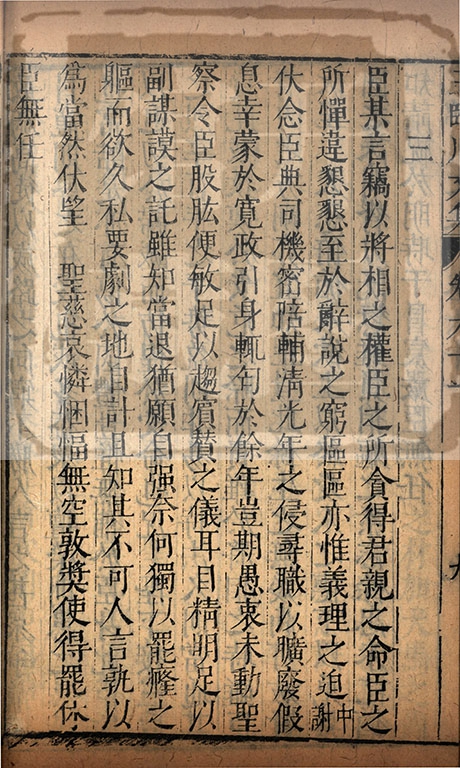 三
臣某言竊以將相之權臣之所貪得君親之命臣之
所憚違懇懇至於辭說之窮區區亦惟義理之迫中謝
伏念臣典司機密陪輔清光年之侵尋職以曠廢假
息幸蒙於寬政引身輒匄於餘年豈期愚衷未動聖
察令臣股肱便敏足以趨賓贊之儀耳目精明足以
副謀謨之託雖知當退猶願自强奈何獨以罷癃之
軀而欲久私要劇之地自計且知其不可人言孰以
為當然伏望　聖慈哀憐悃愊無空敦奬使得罷休
臣無任